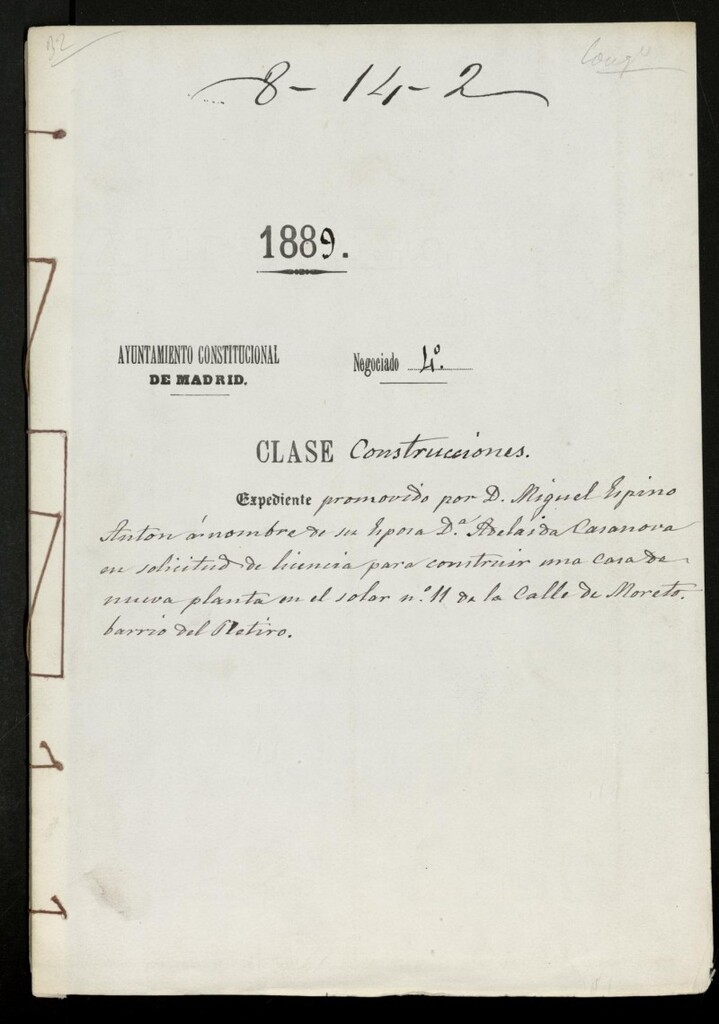 8-14-2
1889.
AYUNTAMIENTO CONSTITUCIONAL
DE MADRID.
Negociado 4º.
CLASE Construcciones.
Expediente promovido por D. Miguel Espino
Anton á nombre de su Esposa Dª. Adelaida Casanova
en solicitud de licencia para construir una casa de
nueva planta en el solar nº. 11 de la Calle de Moreto.
barrio del Retiro.